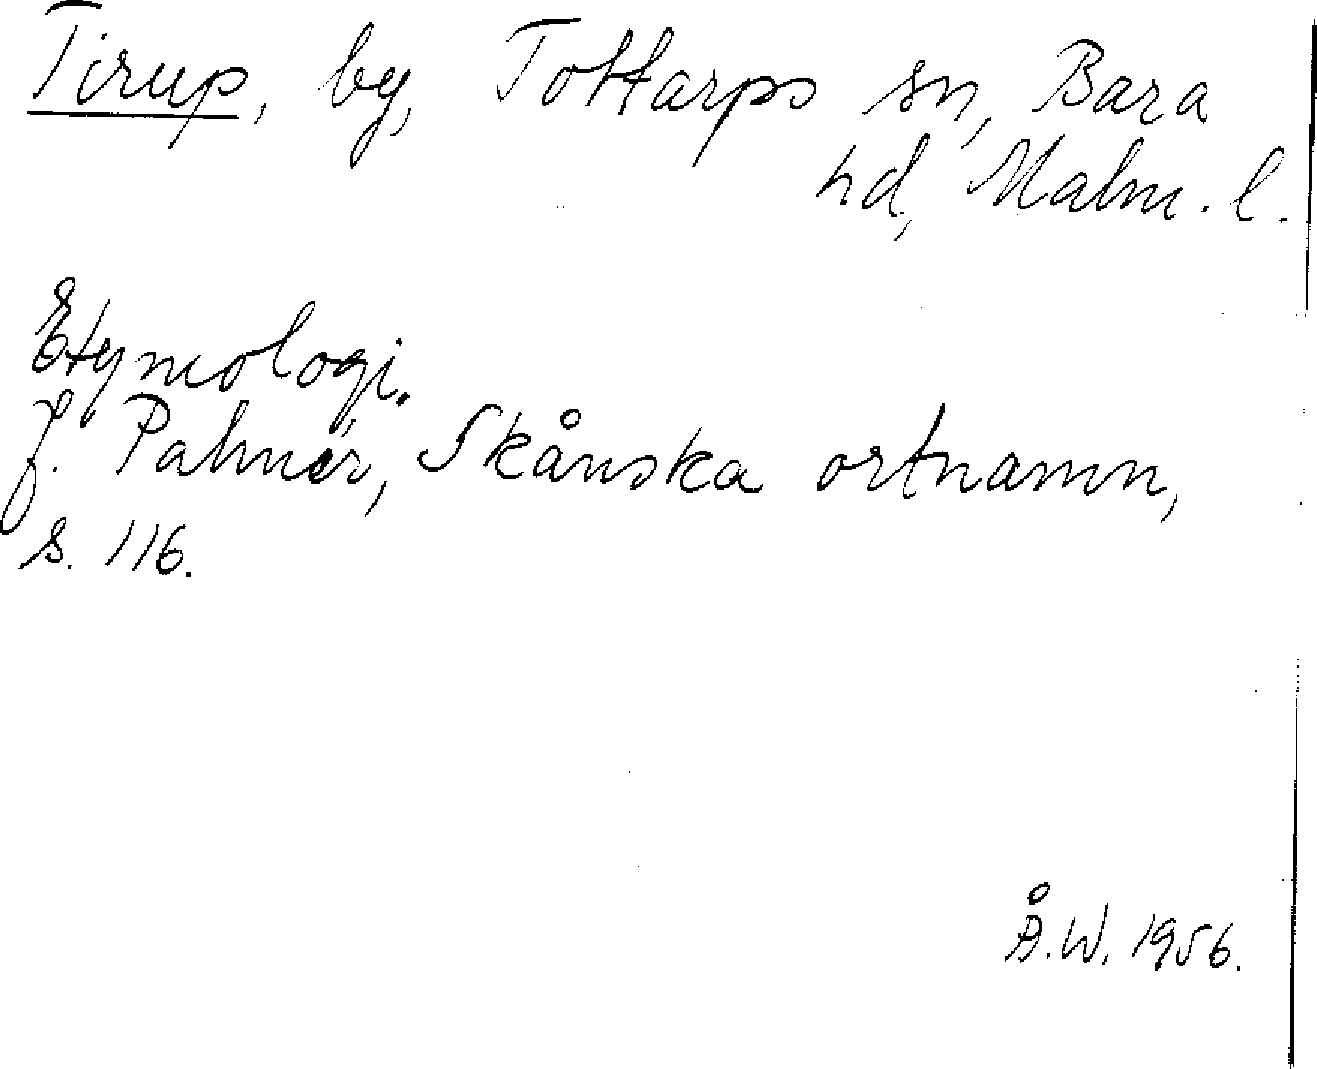 Tirup, by, Tottarps sn, Bara
hd, Malm. l.
Etymologi.
J. Palmér, Skånska ortnamn,
s. 116.
Å.W. 1956.